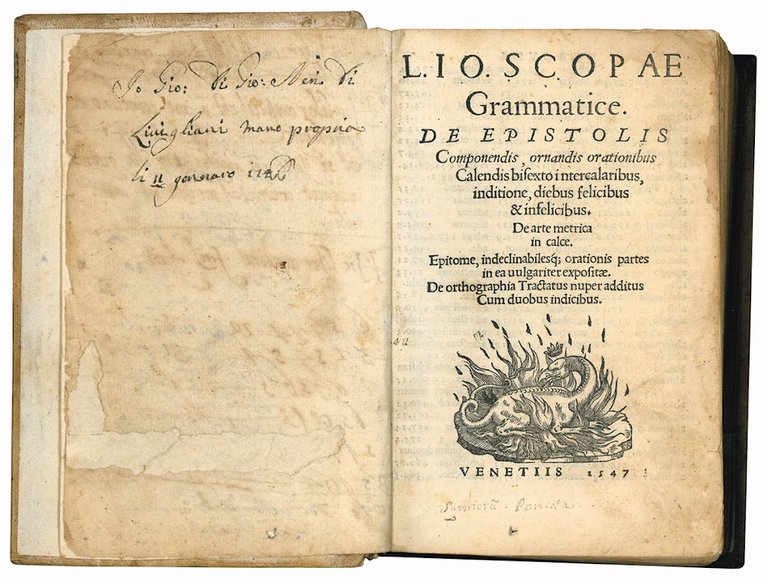 Io Gio: di Gio: Men di
Livigliani mano propria
li 11 gennaro
L. IO. SCOPAE
Grammatice.
DE EPISTOLIS
Componendis, ornandis orationibus
Calendis bisexto intercalaribus,
inditione, diebus felicibus
& infelicibus.
De arte metrica
in calce.
Epitome, indeclinabilesq; orationis partes
in ea uulgariter expositæ.
De orthographia Tractatus nuper additus
Cum duobus indicibus.
VENETIIS 1547